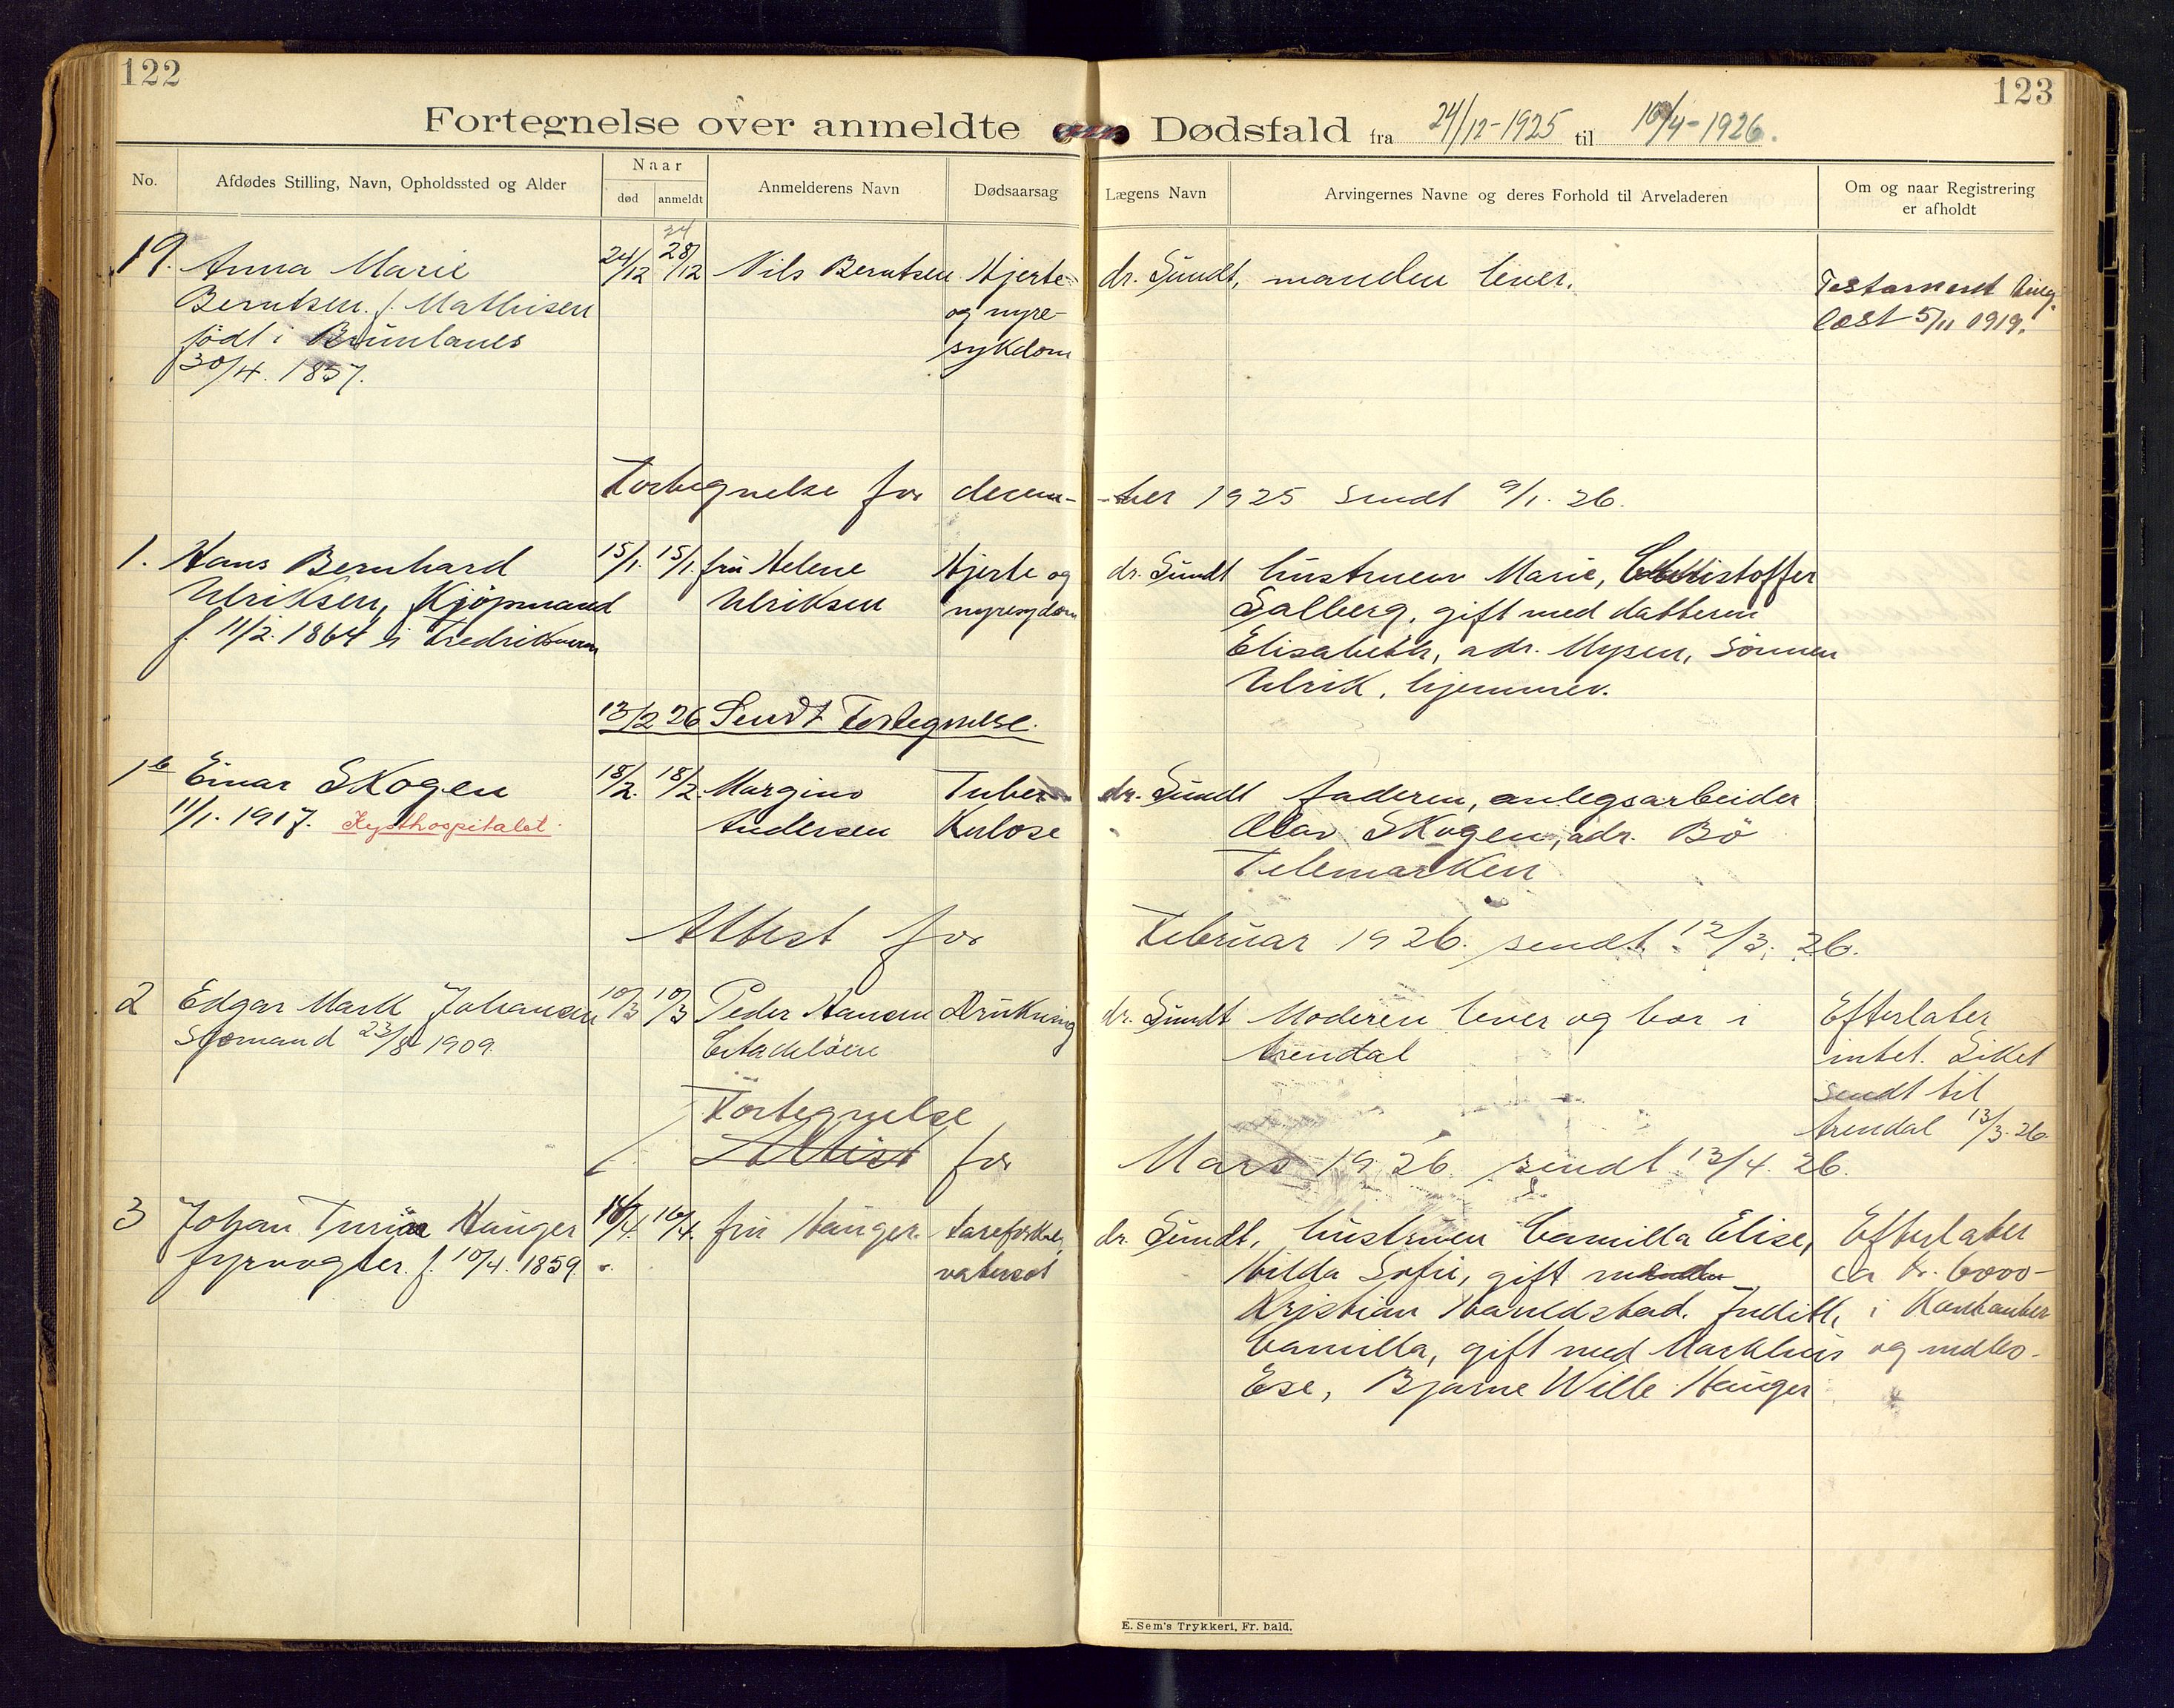 122
123
Fortegnelse over anmeldte Dødsfald fra 24/12-1925 til 16/4-1926.
No.
Afdødes Stilling, Navn, Opholdssted og Alder
Naar
død
anmeldt
Anmelderens Navn
Dødsaarsag
Lægens Navn
Arvingernes Navne og deres Forhold til Arveladeren
Om og naar Registrering
er afholdt
19. Anna Marie
Berntsen. f. Mathisen
født i Brunlanes
30/4. 1857.
24/12
28/12
Nils Berntsen
Hjerte-
og nyre-
sykdom
dr. Sundt,
manden lever.
Testament ting
læst 5/11 1919.
Fortegnelse for decem-
-ber 1925 sendt 9/1. 26.
1. Hans Bernhard
Ulriksen, Kjöpmand
f. 11/2. 1864 i Fredriksvern
15/1.
15/1.
fru Helene
Ulriksen
Hjerte og
nyresydom
dr. Sundt
hustruen Marie, Christoffer
Salberg, gift med datteren
Elisabeth, adr. Mysen, Sönnen
Ulrik, hjemmev.
13/2 26 Sendt Fortegnelse.
1b Einar Skogen
11/1. 1917. Kysthospitalet.
18/2.
18/2.
Margino
Andersen
Tuber
kulose
dr. Sundt
faderen, anlegsarbeider
Olav Skogen, adr. Bö
Telemarken
Attest for
Februar 1926. sendt 12/3. 26.
2 Edgar Mark Johansen
Sjømand 23/8 1909.
10/3
10/3
Peder Hansen
Citadelöen
Drukning
dr. Sundt
Moderen lever og bor i
Arendal
Efterlater
intet. Liket
sendt til
Arendal 13/3. 26.
Fortegnelse
Attest for
Mars 1926. sendt 13/4. 26.
3 Johan Hauger
fyrvogter. f. 10/4. 1859.
16/4.
16/4.
fru Hauger.
vatersot
dr. Sundt,
hustruen Camilla Elise,
Hilda Sofie, gift
Kristian Judith,
Camilla, gift med
Exe, Bjarne Wille Hauger
Efterlater
ca kr. 6000-
i Kontanter
og indbo-
E. Sem's Trykkeri, Fr. hald.